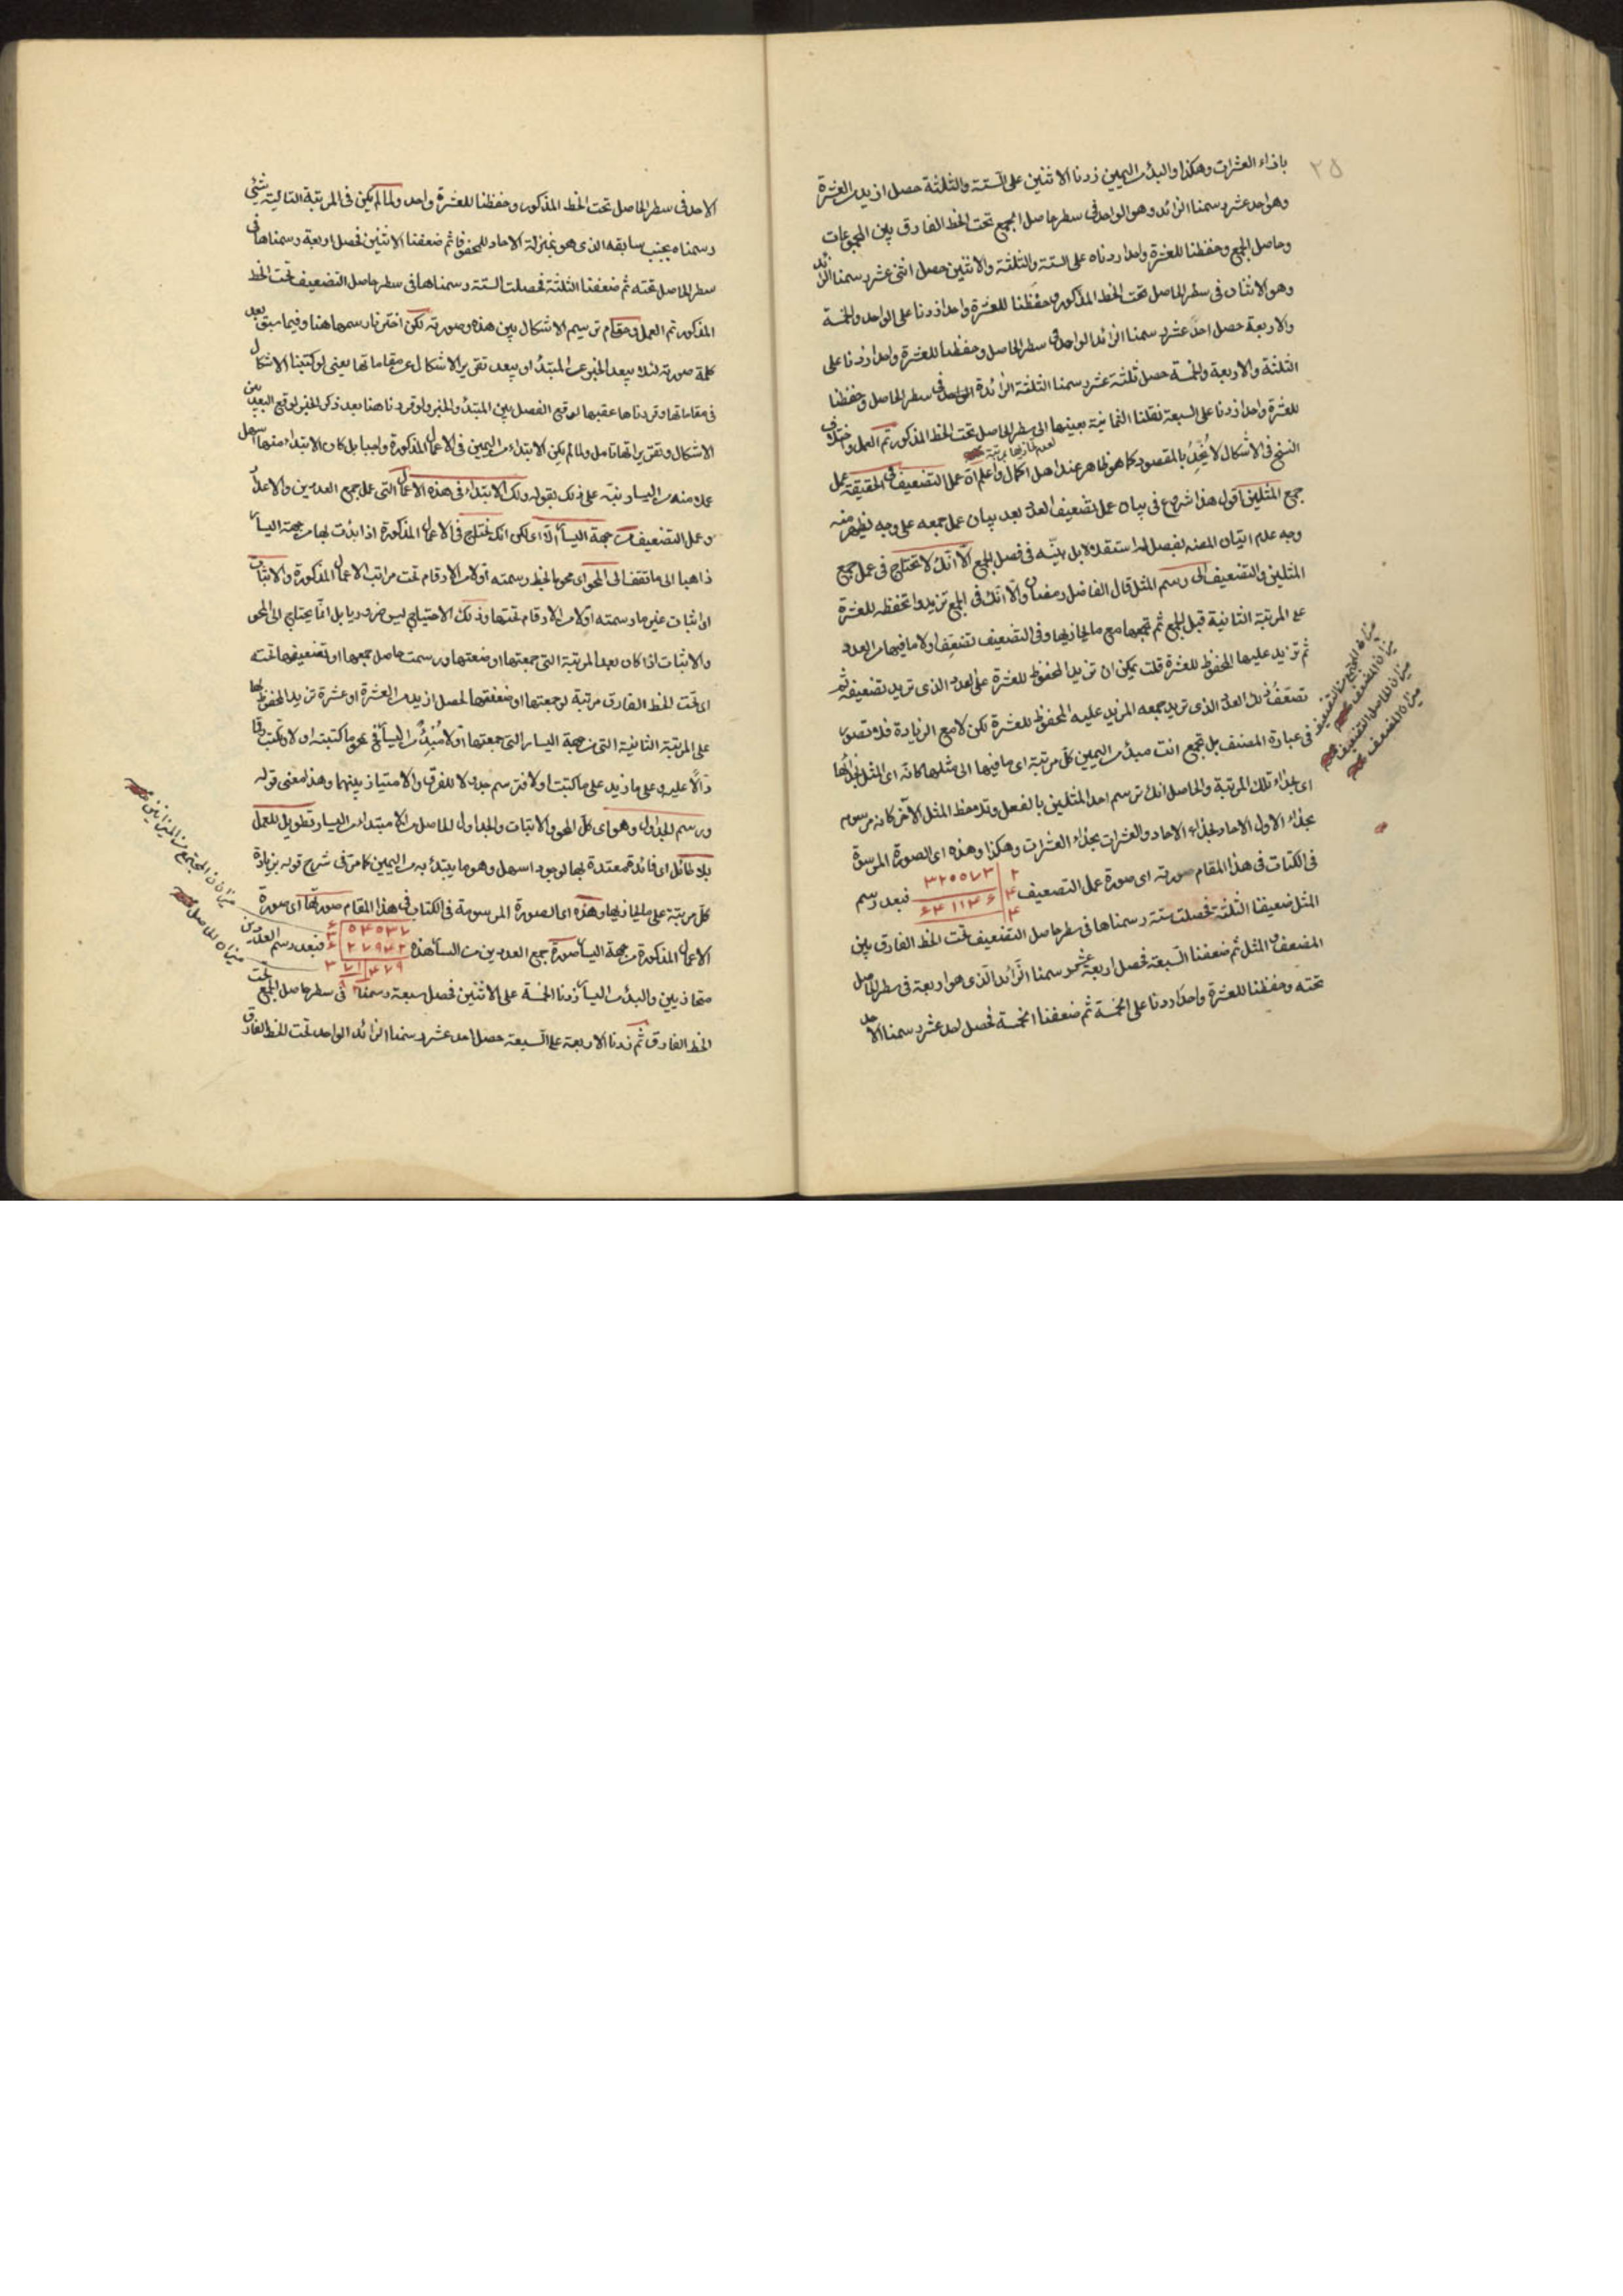 ٢٥
بازاء العشرات وهكذا والبدء من اليمين زدنا الاثنين على الستة والثلثة حصل ازيد من العشرة
وهو احد عشر رسمنا الزائد وهو الواحد فى سطر حاصل الجمع تحت الخط الفارق بين المجموعات
وحاصل الجمع وحفظنا للعشرة واحدا زدناه على الستة والثلثة والاثنين حصل اثنى عشر رسمنا الزائد
وهو الاثنان فى سطر الحاصل تحت الخط المذكور وحفظنا للعشرة واحدا زدنا على الواحد والخمسة
والاربعة حصل احد عشر رسمنا الزائد الواحد فى سطر الحاصل وحفظنا للعشرة واحدا زدنا على
الثلثة والاربعة والخمسة حصل ثلثة عشر رسمنا الثلثة الزائدة فى سطر الحاصل وحفظنا
للعشرة واحدا زدنا على السبعة نقلنا الثمانية بعينها الى سطر الحاصل تحت الخط المذكور تم العمل واختلاف
النسخ فى الاشكال لا يخل بالمقصود كما هو ظاهر عند اهل الكمال واعلم ان عمل التضعيف فى الحقيقة عمل
جمع المثلين اقول هذا شروع فى بيان عمل تضعيف العدد بعد بيان عمل جمعه على وجه يظهر منه
وجه عدم اتيان المصنف بفصل له استقلالا بل بينه فى فصل الجمع الا انك لا تحتاج فى عمل جمع
المثلين والتضعيف الى رسم المثل قال الفاضل رمضان والا انك فى الجمع تزيد ما تحفظه للعشرة
على المرتبة الثانية قبل الجمع ثم تجمعها مع ما يحاذيها وفى التضعيف تضعف اولا ما فيها من العدد
ثم تزيد عليها المحفوظ للعشرة قلت يمكن ان تزيد المحفوظ للعشرة على العدد الذى تريد تضعيفه ثم
تضعف ذلك العدد الذى تريد جمعه المزيد عليه المحفوظ للعشرة لكن لا مع الزيادة فلا تصدق
فى عبارة المصنف بل تجمع انت مبدئا من اليمين كل مرتبة اى ما فيها الى مثلها كانه اى المثل بحذائها
اى بحذاء تلك المرتبة والحاصل انك ترسم احد المثلين بالفعل وتلاحظ المثل الآخر كانه مرسوم
بحذاء الاول الاحاد بحذاء الاحاد والعشرات بحذاء العشرات وهكذا وهذه اى الصورة المرسومة
فى الكتاب فى هذا المقام صورته اى صورة عمل التضعيف ٣٢٠٥٧٣ ٢ فبعد رسم
٦٤١١٤٦ ٤
٤
المثل ضعفنا الثلثة فحصلت ستة رسمناها فى سطر حاصل التضعيف تحت الخط الفارق بين
المضعف والمثل ثم ضعفنا السبعة فحصل اربعة عشر رسمنا الزائد الذى هو اربعة فى سطر الحاصل
تحته وحفظنا للعشرة واحدا زدنا على الخمسة ثم ضعفنا الخمسة فحصل احد عشر رسمنا الاحد
ميزان المضعف
ميزان الحاصل التضعيف
ميزان المضعف
الاحد فى سطر الحاصل تحت الخط المذكور وحفظنا للعشرة واحد ولما لم يكن فى المرتبة التالية شئ
رسمناه بجنب سابقه الذى هو بمنزلة الاحاد للمحفوظ ثم ضعفنا الاثنين فحصل اربعة رسمناها فى
سطر الحاصل تحته ثم ضعفنا الثلثة فحصلت الستة رسمناها فى سطر حاصل التضعيف تحت الخط
المذكور تم العمل ومقام ترسيم الاشكال بين هذه وصورته لكن اخترنا رسمها هنا وفيما سبق بعد
كلمة صورته لئلا يبعد الخبر عن المبتدأ او يبعد تقرير الاشكال عن مقاماتها يعنى لو كتبنا الاشكال
فى مقاماتها وقررناها عقيبها لوقع الفصل بين المبتدأ والخبر ولو قررناها هنا بعد ذكر الخبر لوقع البعد بين
الاشكال وتقريراتها تامل ولما لم يكن الابتداء من اليمين فى الاعمال المذكورة واجبا بل كان الابتداء منها سهل
عمله منه من اليسار نبه على ذلك بقوله ولك الابتداء فى هذه الاعمال التى عمل جمع العددين والاعداد
وعمل التضعيف من جهة اليسار الا اى لكن انك تحتاج فى الاعمال المذكورة اذا بدئت بها من جهة اليسار
ذاهبا الى ما تقف الى المحو اى محو بالخط رسمته اولا من الارقام تحت مراتب الاعمال المذكورة والاثبات
اى اثبات غير ما رسمته اولا من الارقام تحتها وذلك الاحتياج ليس ضروريا بل انما يحتاج الى المحو
والاثبات اذا كان بعد المرتبة التى جمعتها او ضعفتها ورسمت حاصل جمعها او تضعيفها تحته
اى تحت الخط الفارق مرتبة لو جمعتها او ضعفتها لحصل ازيد من العشرة او عشرة تزيد المحفوظ لها
على المرتبة الثانية التى من جهة اليسار التى جمعتها اولا مبتدئا من اليسار فتمحو ما كتبته اولا وتكتب رقما
دالا عليه وعلى ما زيد على ما كتبت اولا فترسم جدولا للفرق والامتياز بينهما وهذا معنى قوله
ورسم الجداول وهو اى كل المحو والاثبات والجداول الحاصل من الابتداء من اليسار تطويل للعمل
بلا طائل اى فائدة معتدة بها لوجود اسهل وهو ما يبتدئ به من اليمين كما مر فى شرح قوله بزيادة
كل مرتبة على ما يحاذيها وهذه اى الصورة المرسومة فى الكتاب فى هذا المقام صورتها اى صورة
الاعمال المذكورة من جهة اليسار صورة جمع العددين من اليسار هذه ٥٤٥٣٧ فبعد رسم العددين
٢٧٩٤٢
متحاذيين والبدء من اليسار زدنا الخمسة على الاثنين فحصل سبعة رسمناه فى سطر حاصل الجمع تحت
الخط الفارق ثم زدنا الاربعة على السبعة حصل احد عشر رسمنا الزائد الواحد تحت الخط الفارق
ميزان المجتمع من الميزانين
ميزان الحاصل